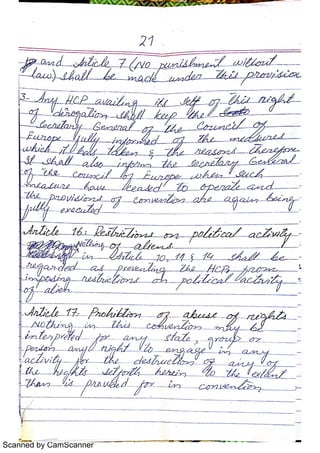 21
and Article 7 (No punishment without
law) shall be made under this provision
3. Any HCP availing its self of this right
of derogation shall keep the
Secretary General of the Council of
Europe fully informed of the measures
which it has taken & the reasons therefore.
It shall also inform the Secretary General
of the council of Europe when such
measure have ceased to operate and
the provisions of convention are again being
fully executed.
Article 16: Restrictions on political activity
of aliens
Nothing in Article 10, 11 & 14 shall be
regarded as preventing the HCPs from
imposing restrictions on political activity
of alien.
Article 17: Prohibition of abuse of rights
Nothing in this convention may be
interpreted for any state, group or
person any right to engage in any
activity for the destruction of any of
the rights setforth herein to the extent
than is provided for in convention
Scanned by CamScanner